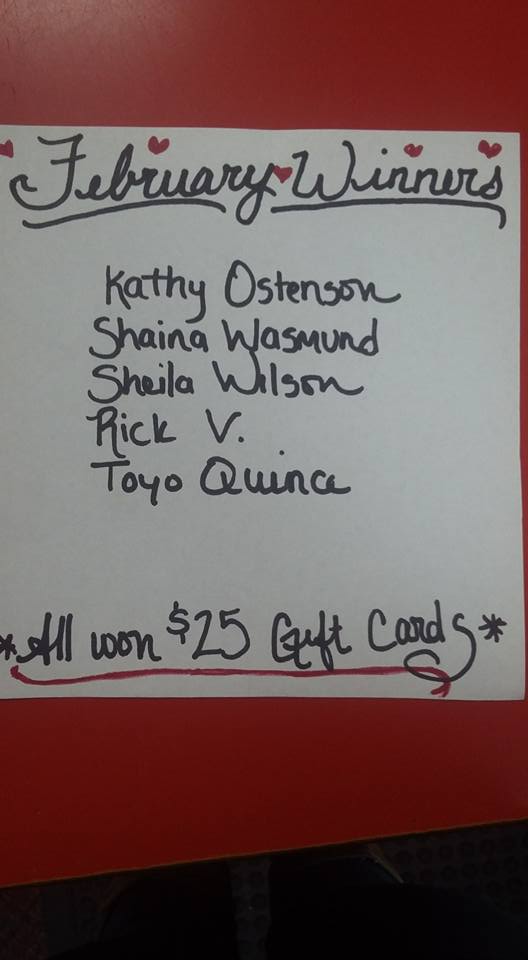 February Winners
Kathy Ostenson
Shaina Wasmund
Sheila Wilson
Rick V.
Toyo Quince
*All won $25 Gift Cards*